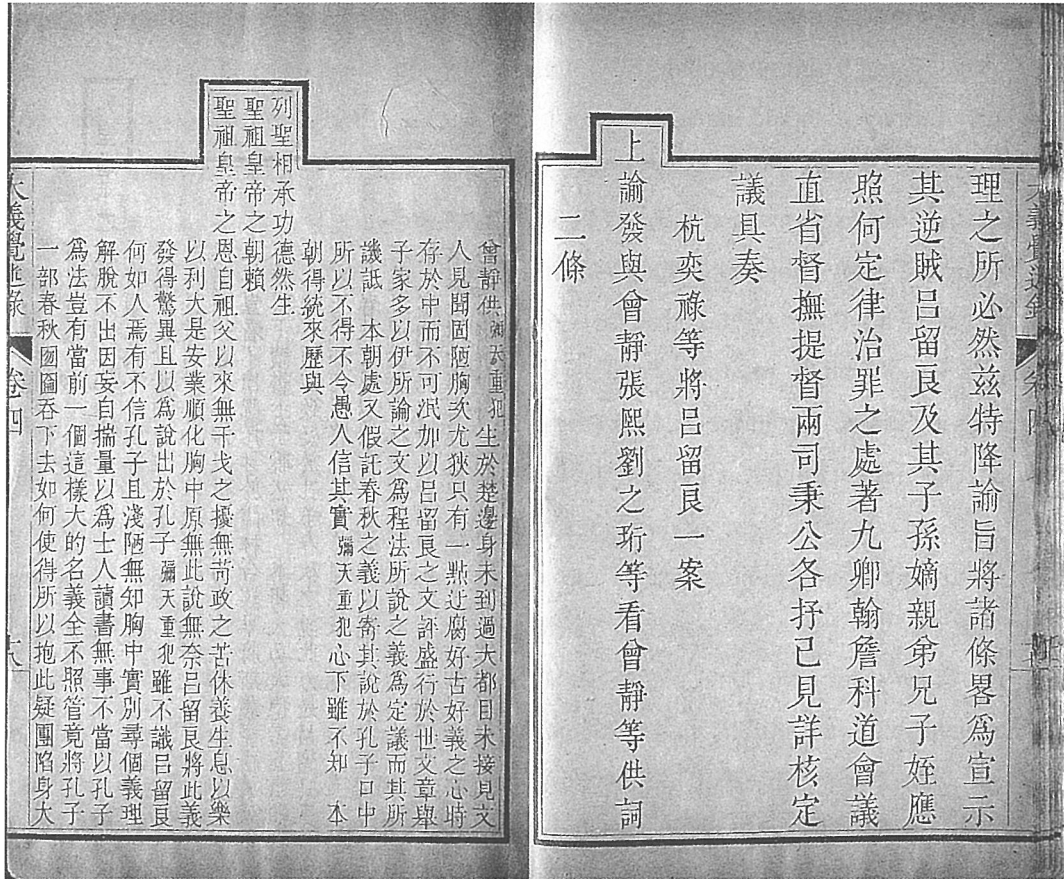 理之所必然茲特降諭旨將諸條畧爲宣示
其逆賊呂留良及其子孫嫡親弟兄子姪應
照何定律治罪之處著九卿翰詹科道會議
直省督撫提督兩司秉公各抒己見詳核定
議具奏
杭奕祿等將呂留良一案
上諭發與曾靜張熙劉之珩等看曾靜等供詞
二條
曾靜供彌天重犯生於楚邊身未到過大都目未接見文
人見聞固陋胸次尤狹只有一點迂腐好古好義之心時
存於中而不可泯加以呂留良之文評盛行於世文章舉
子家多以伊所論之文爲程法所說之義爲定議而其所
譏詆 本朝處又假託春秋之義以寄其說於孔子口中
所以不得不令愚人信其實彌天重犯心下雖不知 本
朝得統來歷與
列聖相承功德然生
聖祖皇帝之朝賴
聖祖皇帝之恩自祖父以來無干戈之擾無苛政之苦休養生息以樂
以利大是安業順化胸中原無此說無奈呂留良將此義
發得驚異且以爲說出於孔子彌天重犯雖不識呂留良
何如人焉有不信孔子且淺陋無知胸中實別尋個義理
解脫不出因妄自揣量以爲士人讀書無事不當以孔子
爲法豈有當前一個這樣大的名義全不照管竟將孔子
一部春秋囫圇吞下去如何使得所以抱此疑團陷身大
大義覺迷錄 卷四